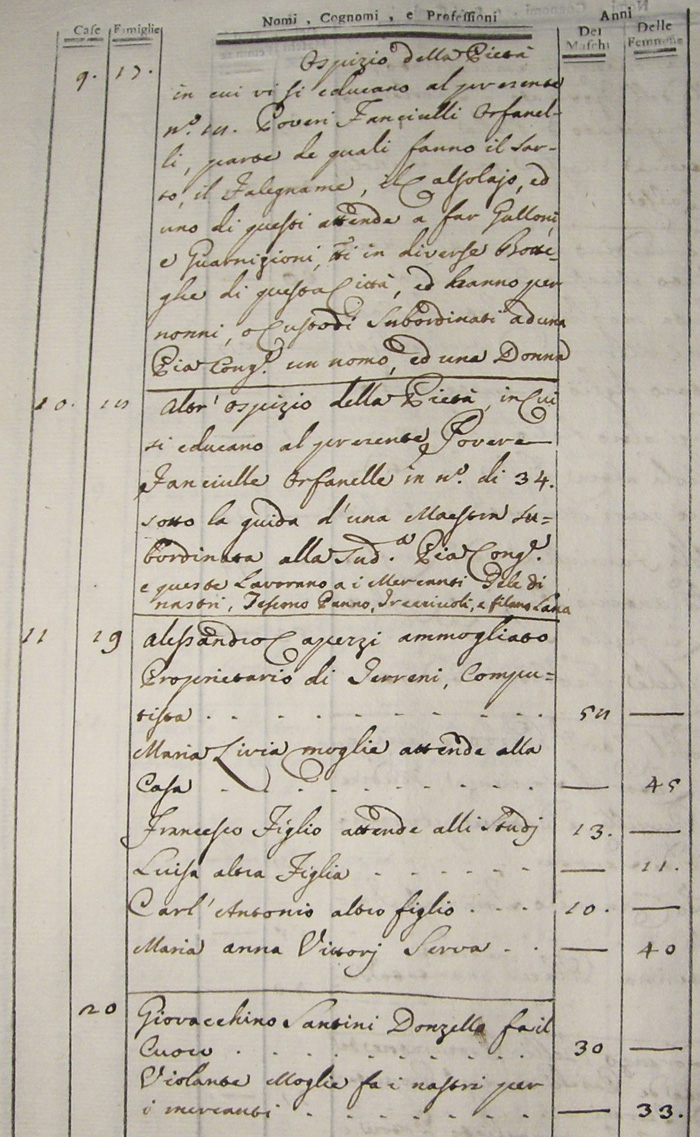 Case Famiglie Nomi, Cognomi, e Professioni Anni
Dei Maschi Delle Femmine
9. 17. Ospizio della Pietà
in cui vi si educano al presente
n.º Poveri Fanciulli Orfanel-
li, parte de quali fanno il Sar-
to, il Falegname, il Calsolajo, ed
uno di questi attende a far Galloni
e Guarnizioni, tti in diverse Botte-
ghe di questa Città, ed hanno per
nonni, o Custodi Subordinati ad una
Pia Cong.e un uomo, ed una Donna
10. 18 Altr' ospizio della Pietà, in Cui
si educano al presente Povere
Fanciulle Orfanelle in nº. di 34.
sotto la guida d'una Maestra Su=
bordinata alla Sud.a Pia Cong.e
e queste Lavorano a i Mercanti Tele di
nastri, Tessono Panno, e filano Lana
11 19 Alessandro Caperzi ammogliato
Proprietario di Terreni, Compu=
tista 58 —
Maria Livia moglie attende alla
Casa — 45
Francesco Figlio attende alli Studj 13. —
Luisa altra Figlia — 11.
Carl' Antonio altro figlio 10. —
Maria anna Vittorj Serva — 40
20 Giovacchino Santini Donzello fa il
Cuoco 30 —
Violante Moglie fa i nastri per
i mercanti — 33.